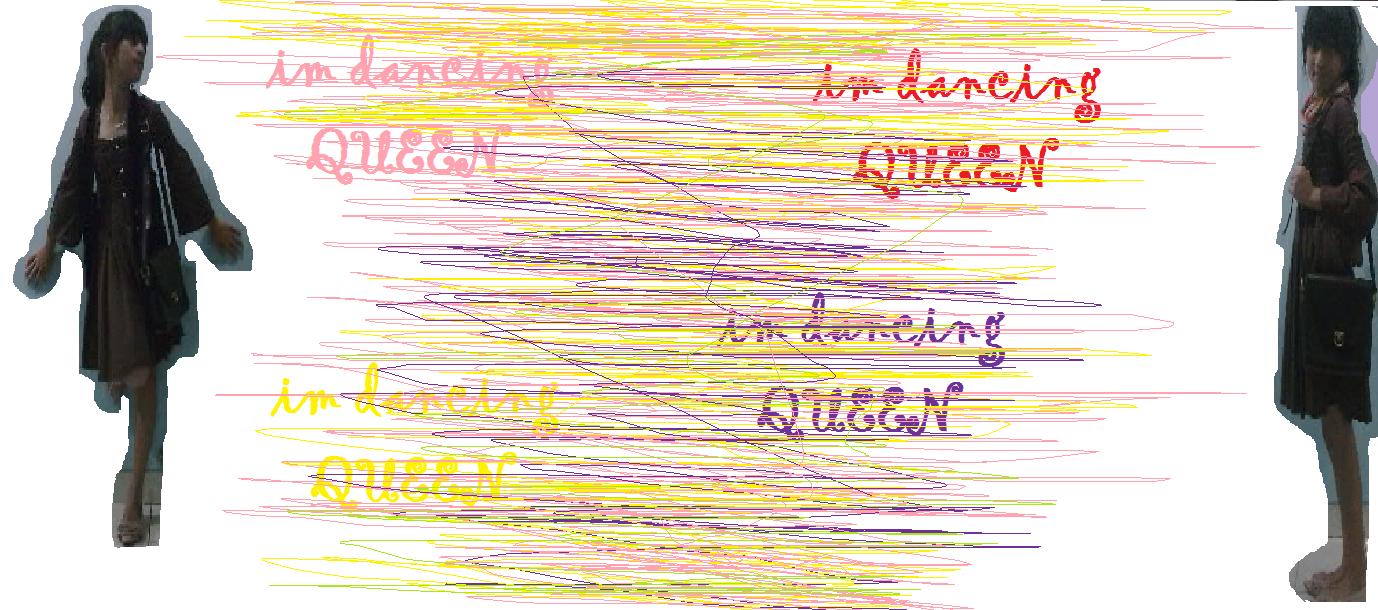 im dancing
QUEEN
im dancing
QUEEN
im dancing
QUEEN
im dancing
QUEEN